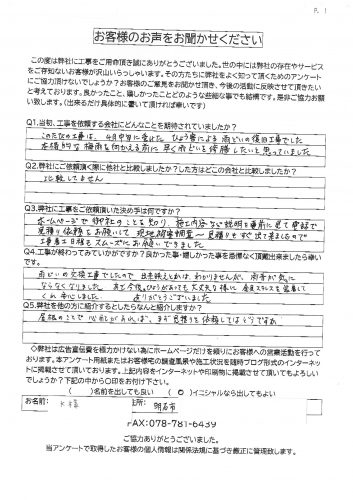 P. 1
お客様のお声をお聞かせください
この度は弊社に工事をご用命頂き誠にありがとうございました。世の中には弊社の存在やサービス
をご存知ないお客様が沢山いらっしゃいます。その方たちに弊社をよく知って頂くためのアンケート
にご協力頂けないでしょうか?お客様のご意見をお聞かせ頂き、今後の活動に反映させて頂きたい
と考えております。良かったこと、嬉しかったことどのような些細な事でも結構です。是非ご協力お願
い致します。（出来るだけ具体的に書いて頂ければ幸いです）
Q1.当初、工事を依頼する会社にどんなことを期待されていましたか?
このたびの工事は、4月中旬に受けた、ひょう害による雨どいの復旧工事でした
本格的な梅雨を向かえる前に早く雨どいを修繕したいと思っていました
Q2.弊社にご依頼頂く際に他社と比較しましたか?した方はどこの会社と比較しましたか?
比較してません
Q3.弊社に工事をご依頼頂いた決め手は何ですか?
ホームページで御社のことを知り、施工内容など説明を事前に見て電話で
見積り依頼をお願いして現地調査〜見積りもすぐ出て来ましたので
工事着工日程もスムーズにお願いできました
Q4.工事が終わってみていかがですか?良かった事・嬉しかった事を忌憚なく頂戴出来ましたら幸い
です。
雨どいの交換工事でしたので、出来映えとかは、わかりませんが、雨音が気に
ならなくなりました。また今後ひょうがふっても大丈夫な様に金属ステンレスを装着して
くれ安心しました。ありがとうございました
Q5.弊社を他の方に紹介するとしたらなんと紹介しますか?
屋根のことで心配がみえれば、まず見積りを依頼してはどうですか
◇弊社は広告宣伝費を極力かけない為にホームページだけを頼りにお客様への営業活動を行って
おります。本アンケート用紙またはお客様宅の調査風景や施工状況を随時ブログ形式のインターネッ
トに掲載させて頂いております。上記内容をインターネットや印刷物に掲載させて頂いてもよろしい
でしょうか? 下記の中から〇印をお付け下さい。
（　）名前を出しても良い （〇）イニシャルなら出してもよい
お名前: K様 住所: 明石市
FAX:078-781-6439
ご協力ありがとうございました。
当アンケートで取得したお客様の個人情報は関係法規に基づき厳正に管理致します。